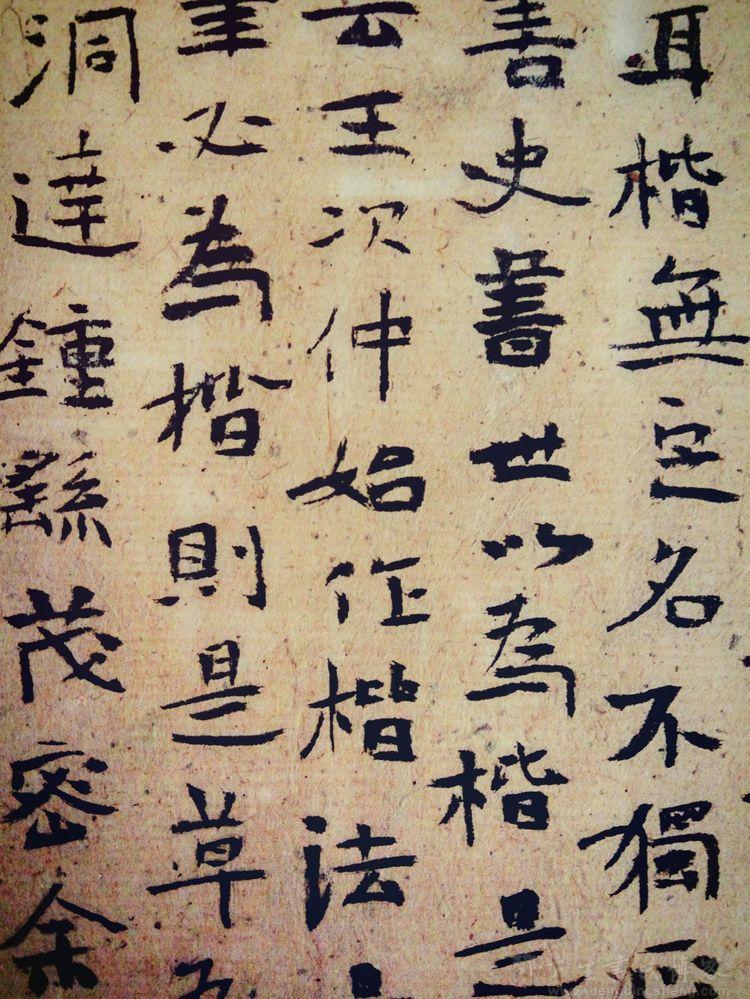 耳楷無定名不獨
善史書世以為楷是
云王次仲始作楷法
必為楷則是草
洞達鍾繇茂密余
www.dengdingsheng.com